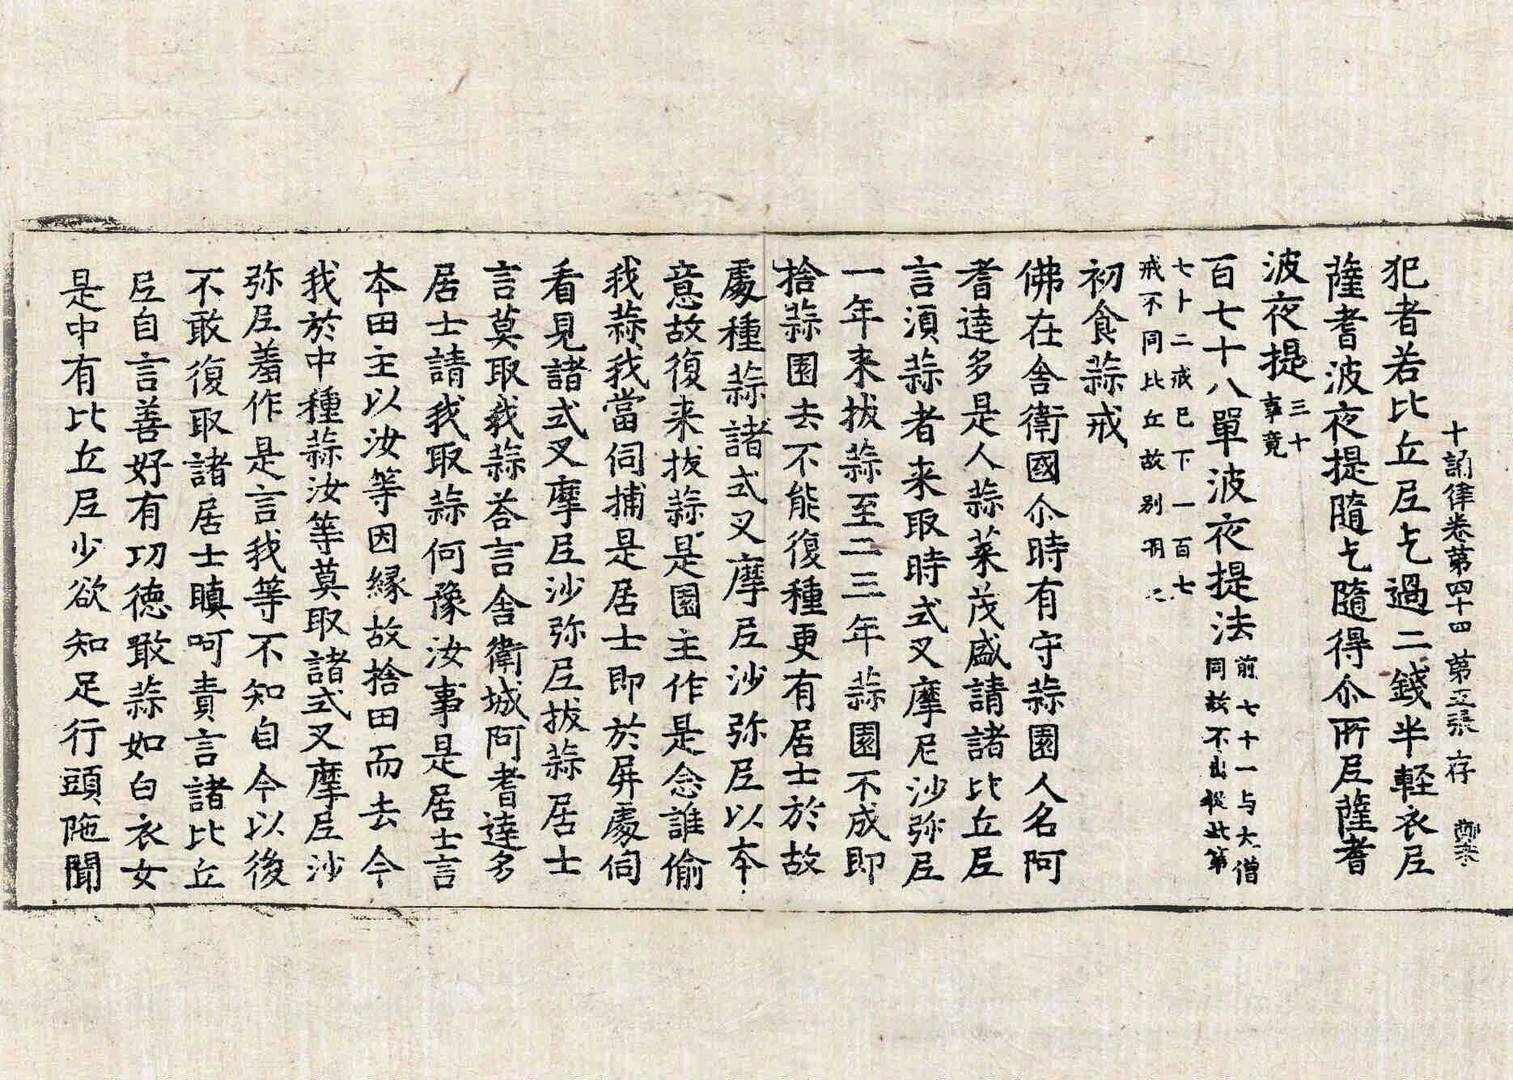 十誦律卷第四十四 第五張 存
犯者若比丘尼乞過二錢半輕衣尼
薩耆波夜提隨乞隨得尒所尼薩耆
波夜提三十事竟
百七十八單波夜提法前七十一与大僧同故不出從此第
七十二戒已下一百七
戒不同比丘故別明之
初食蒜戒
佛在舍衛國尒時有守蒜園人名阿
耆達多是人蒜菜茂盛請諸比丘尼
言須蒜者来取時式叉摩尼沙弥尼
一年来拔蒜至二三年蒜園不成即
捨蒜園去不能復種更有居士於故
處種蒜諸式叉摩尼沙弥尼以夲
意故復来拔蒜是園主作是念誰偷
我蒜我當伺捕是居士即於屏處伺
看見諸式叉摩尼沙弥尼拔蒜居士
言莫取我蒜荅言舍衛城阿耆達多
居士請我取蒜何豫汝事是居士言
夲田主以汝等因縁故捨田而去今
我於中種蒜汝等莫取諸式叉摩尼沙
弥尼羞作是言我等不知自今以後
不敢復取諸居士瞋呵責言諸比丘
尼自言善好有功徳噉蒜如白衣女
是中有比丘尼少欲知足行頭陁聞